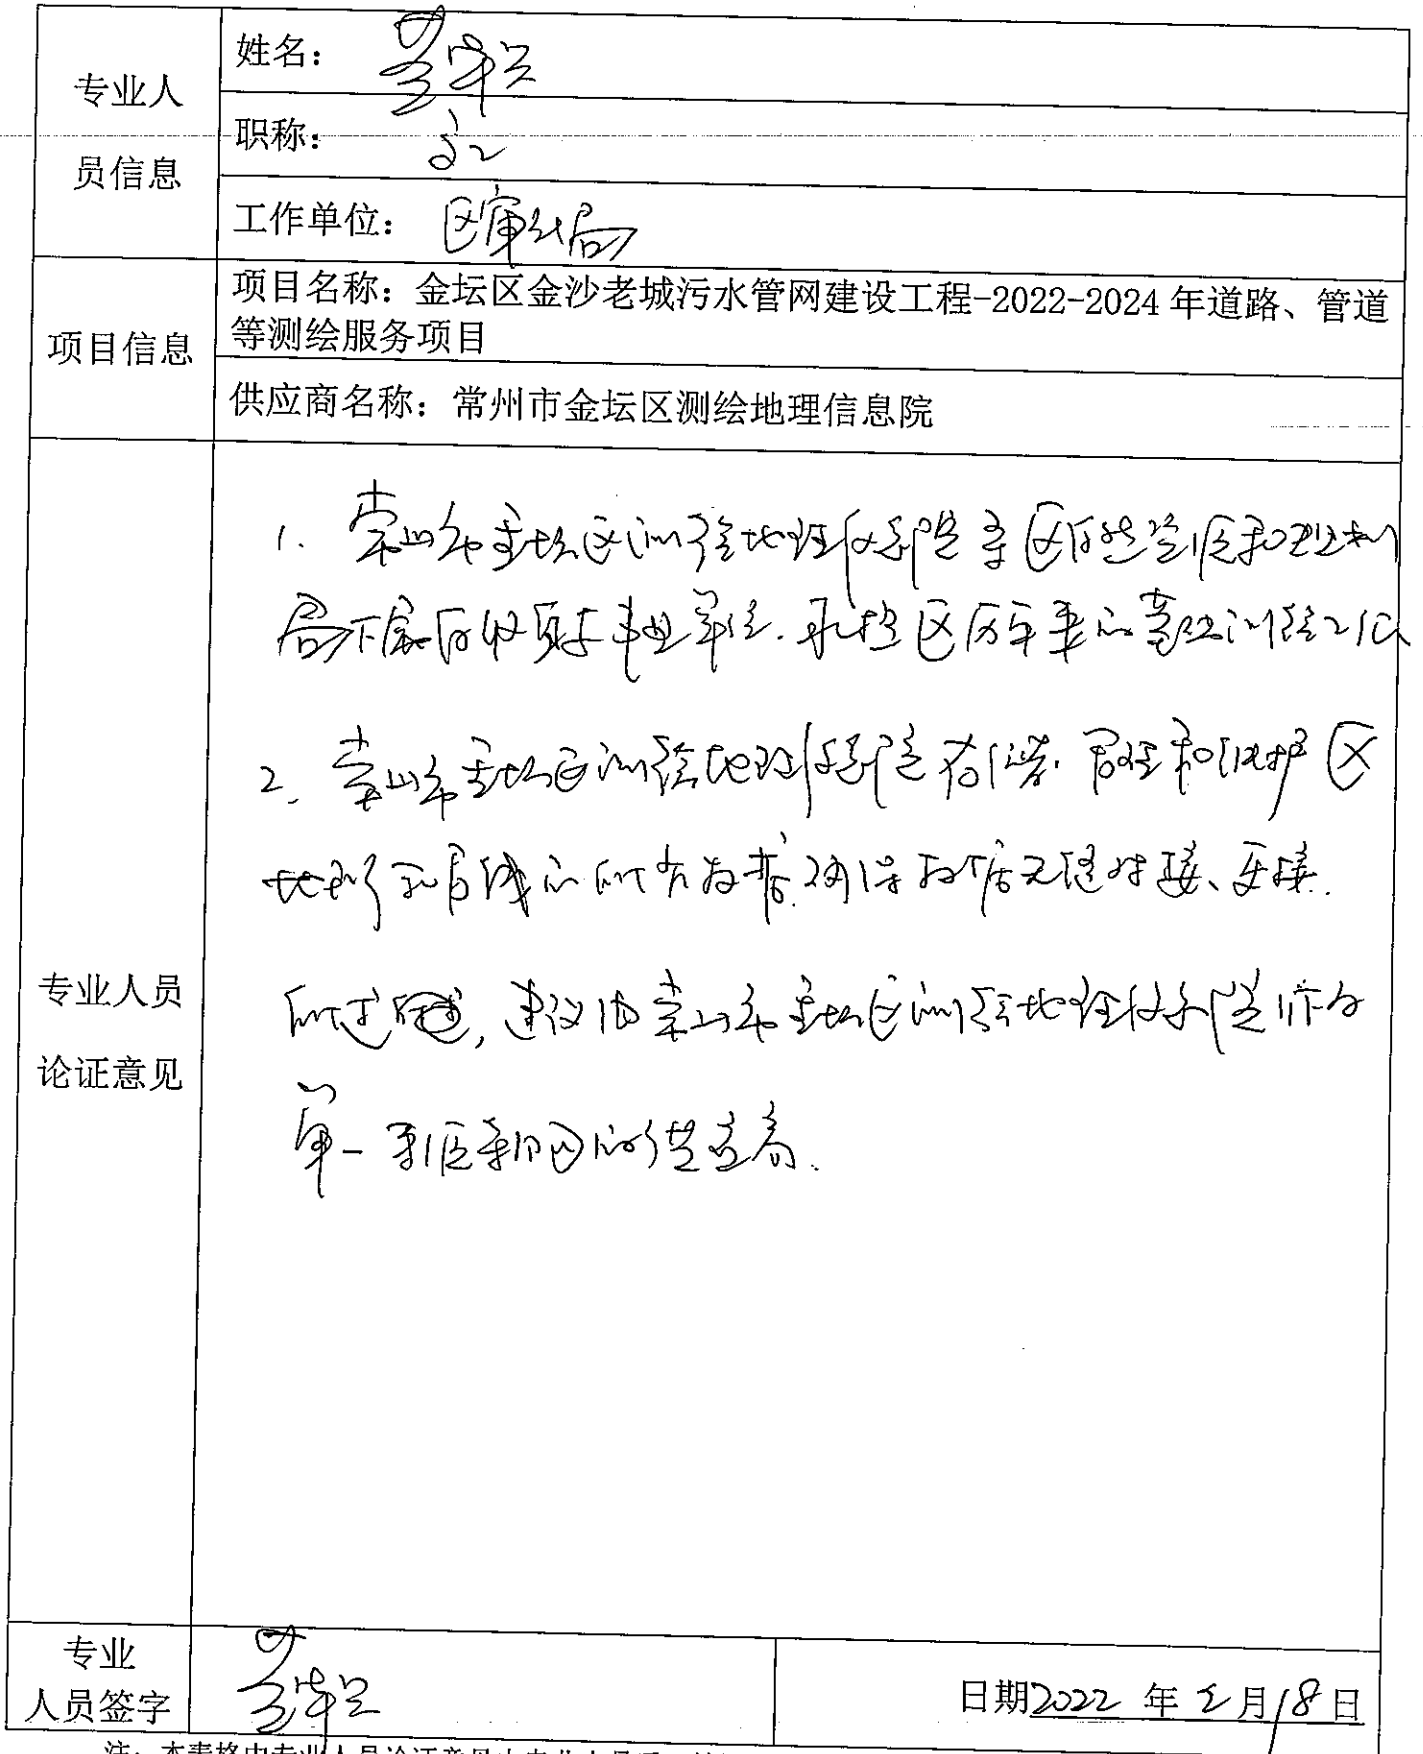 专业人员信息
姓名：
职称：高工
工作单位：区审计局
项目信息
项目名称：金坛区金沙老城污水管网建设工程-2022-2024年道路、管道
等测绘服务项目
供应商名称：常州市金坛区测绘地理信息院
专业人员
论证意见
1. 常州市金坛区测绘地理信息院系区自然资源和规划
局下属自收自支事业单位.承担区历年来的基础测绘工作
2. 常州市金坛区测绘地理信息院存储.管理和维护区
地形和管线的所有数据.确保数据无缝对接、更换.
所述,建议由常州市金坛区测绘地理信息院作为
单一来源采购的供应商.
专业
人员签字
日期2022年2月18日